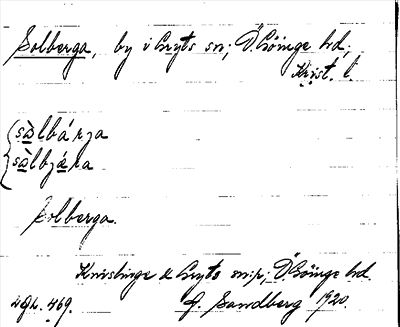 Solberga, by i Gryts sn; Ö Göinge hd,
Krist. l.
sàlbárja
sàlbjára
Solberga.
Knislinge & Gryts sn:r, Ö Göinge hd.
AGL. 469. G. Sandberg 1920.